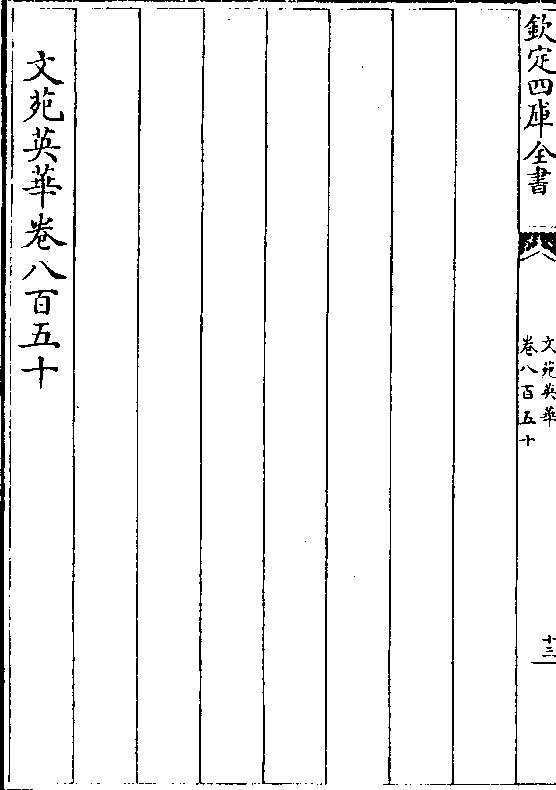 欽定四庫全書
文苑英華
卷八百五十
十三
文苑英華卷八百五十